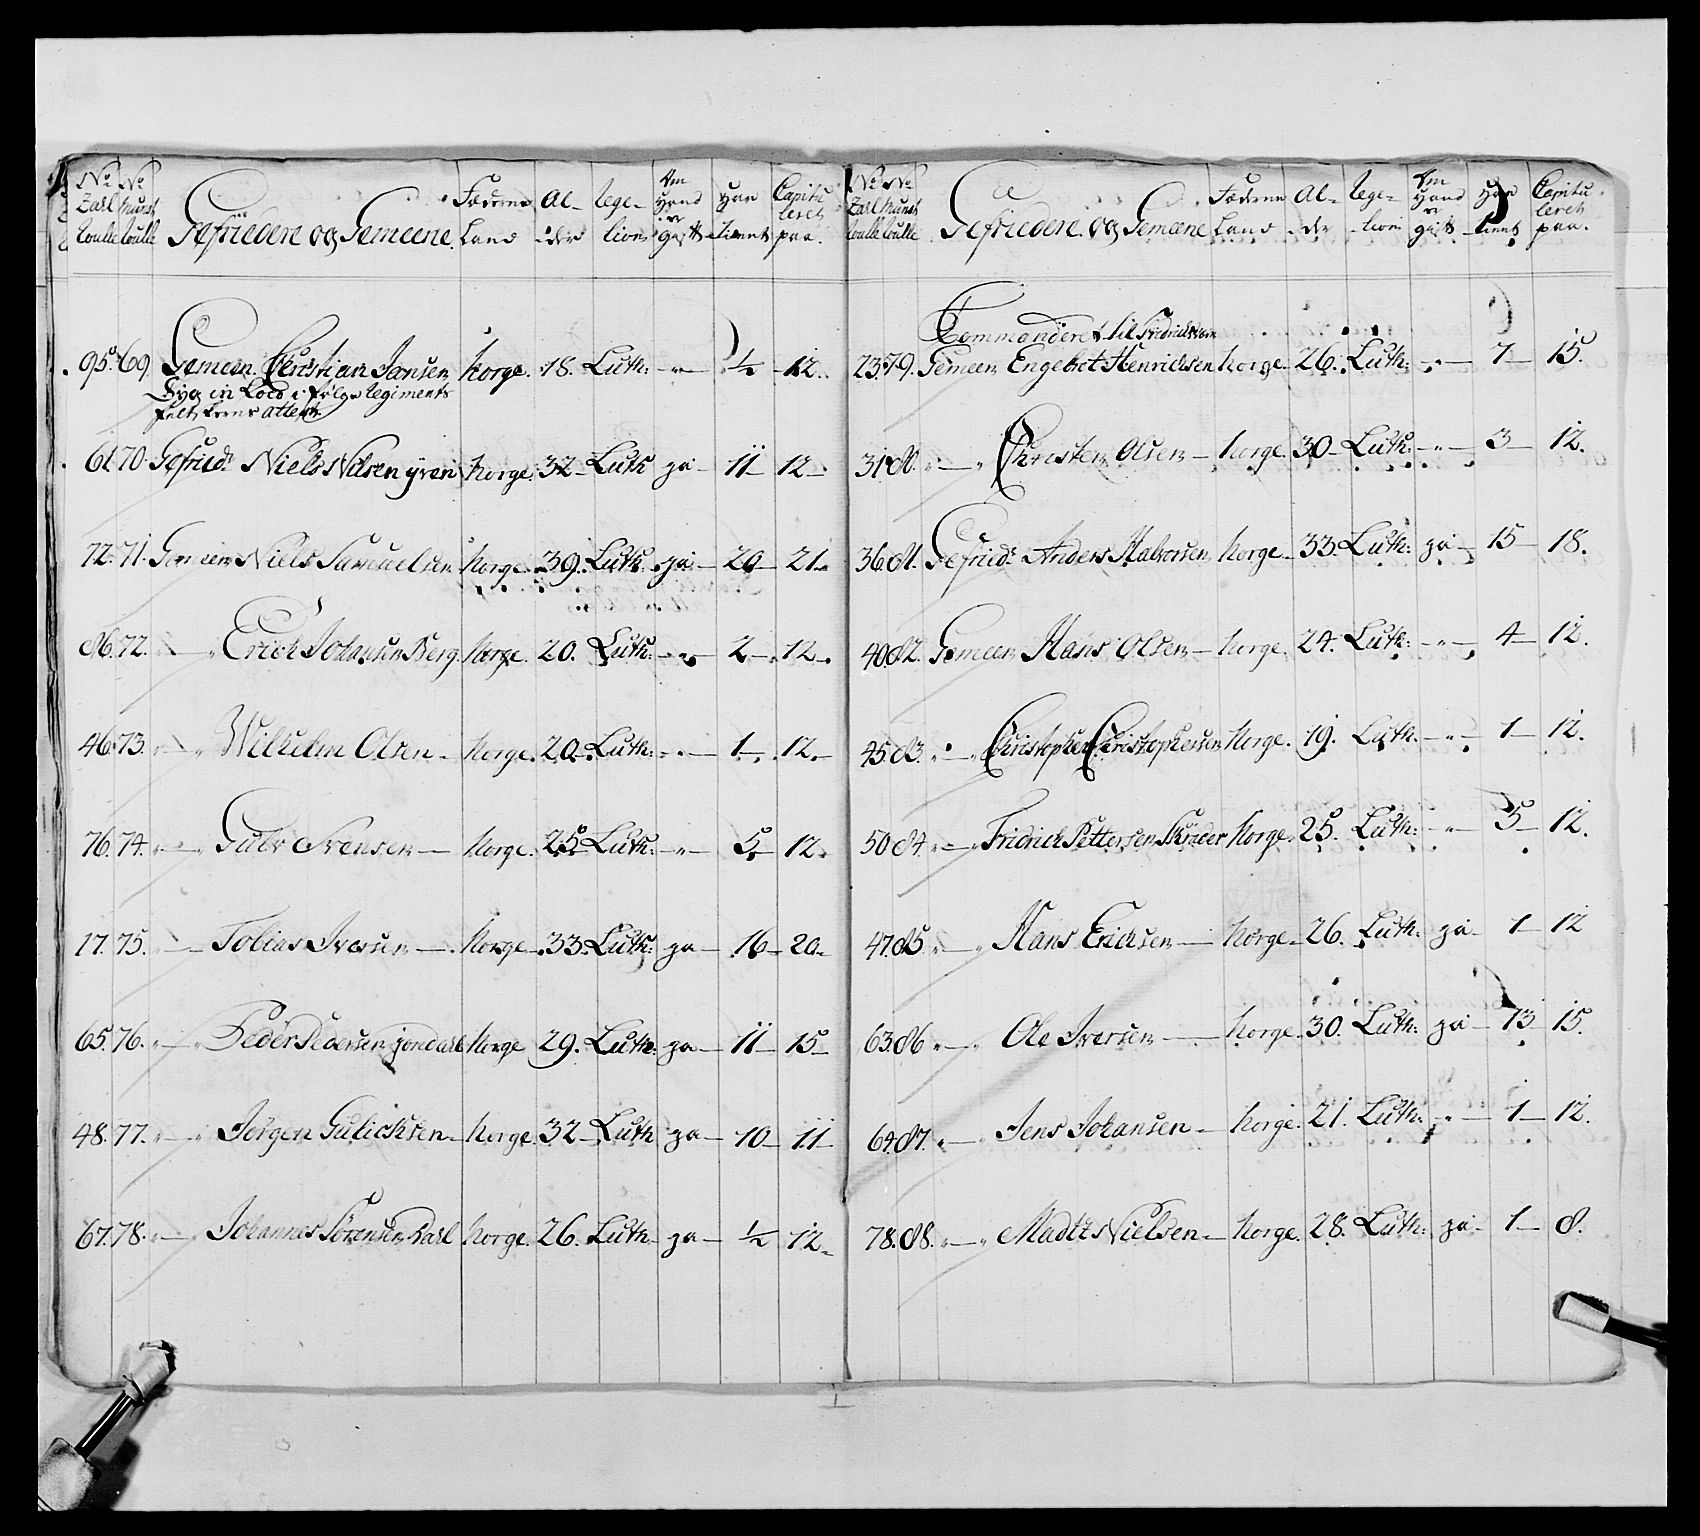 No No Gefriedere og Gemeene. Fæderne Land Al- der Rege- lion Om Hand er gift Har tient Capitu leret paa.
95. 69. Gemeen Christian Jansen Norge. 18. Luth: -"- ½ 12.
Syg in Loco i følge Regiments
felt skerens attest
61. 70. Gefried: Niels Nilsen Norge. 32- Luth ja- 11 12-
72. 71. Gemeen Niels Samuelsen Norge. 39. Luth. ja- 20- 21.
86. 72. -"- Erich Johansen Berg. Norge. 20. Luth: -"- 2- 12-
46. 73. -"- Wilhelm Olsen- Norge. 20. Luth: -"- 1- 12-
76. 74. -"- Gulv Svensen- Norge. 25. Luth: -"- 5- 12-
17. 75. -"- Tobias Iversen- Norge. 33. Luth: ja- 16- 20-
65. 76. -"- Peder Pedersen Norge 29. Luth: ja- 11- 15-
48. 77. -"- Jørgen Gulichsen- Norge. 32- Luth ja- 10- 11-
67. 78. -"- Johannes Sørensen Norge. 26. Luth- ja- ½ 12-
No No Gefriedere og Gemeene Fæderne Land Al- der Rege- lion Om Hand er gift Har tient Capitu leret paa.
Commanderet til
23. 79. Gemeen Engebret Henrichsen Norge. 26. Luth: -"- 7- 15.
31. 80. -"- Christen Olsen- Norge. 30- Luth: -"- 3- 12.
36. 81. Gefried: Anders Halvorsen Norge- 33. Luth: ja- 15- 18.
40. 82. Gemeen Hans Olsen- Norge. 24. Luth: -"- 4- 12.
45. 83. -"- Christopher Christophersen Norge. 19. Luth: -"- 1- 12.
50. 84. -"- Fridrich Pettersen Norge. 25. Luth: -"- 5- 12.
47. 85. -"- Hans Erichsen- Norge- 26. Luth: ja- 1- 12
63. 86 -"- Ole Iversen- Norge- 30. Luth: ja- 13 15.
64. 87. -"- Jens Johansen- Norge. 21. Luth: -"- 1- 12.
78. 88. -"- Madtz Nielsen- Norge. 28. Luth: ja- 1- 8.